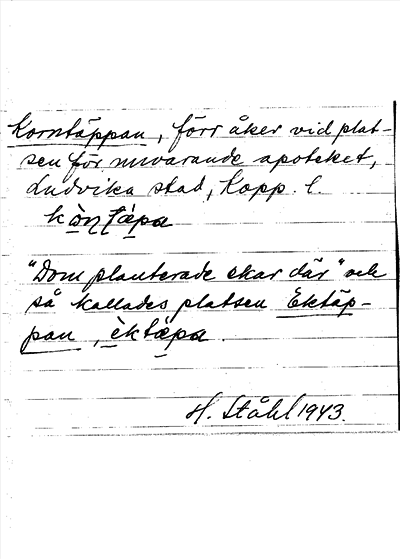 Korntäppan, förr åker vid plat-
sen för nuvarande apoteket,
Ludvika stad, Kopp. l.
kòn̩tæpa
"Dom planterade ekar där" och
så kallades platsen Ektäp-
pan, èktæpa.
H. Ståhl 1943.